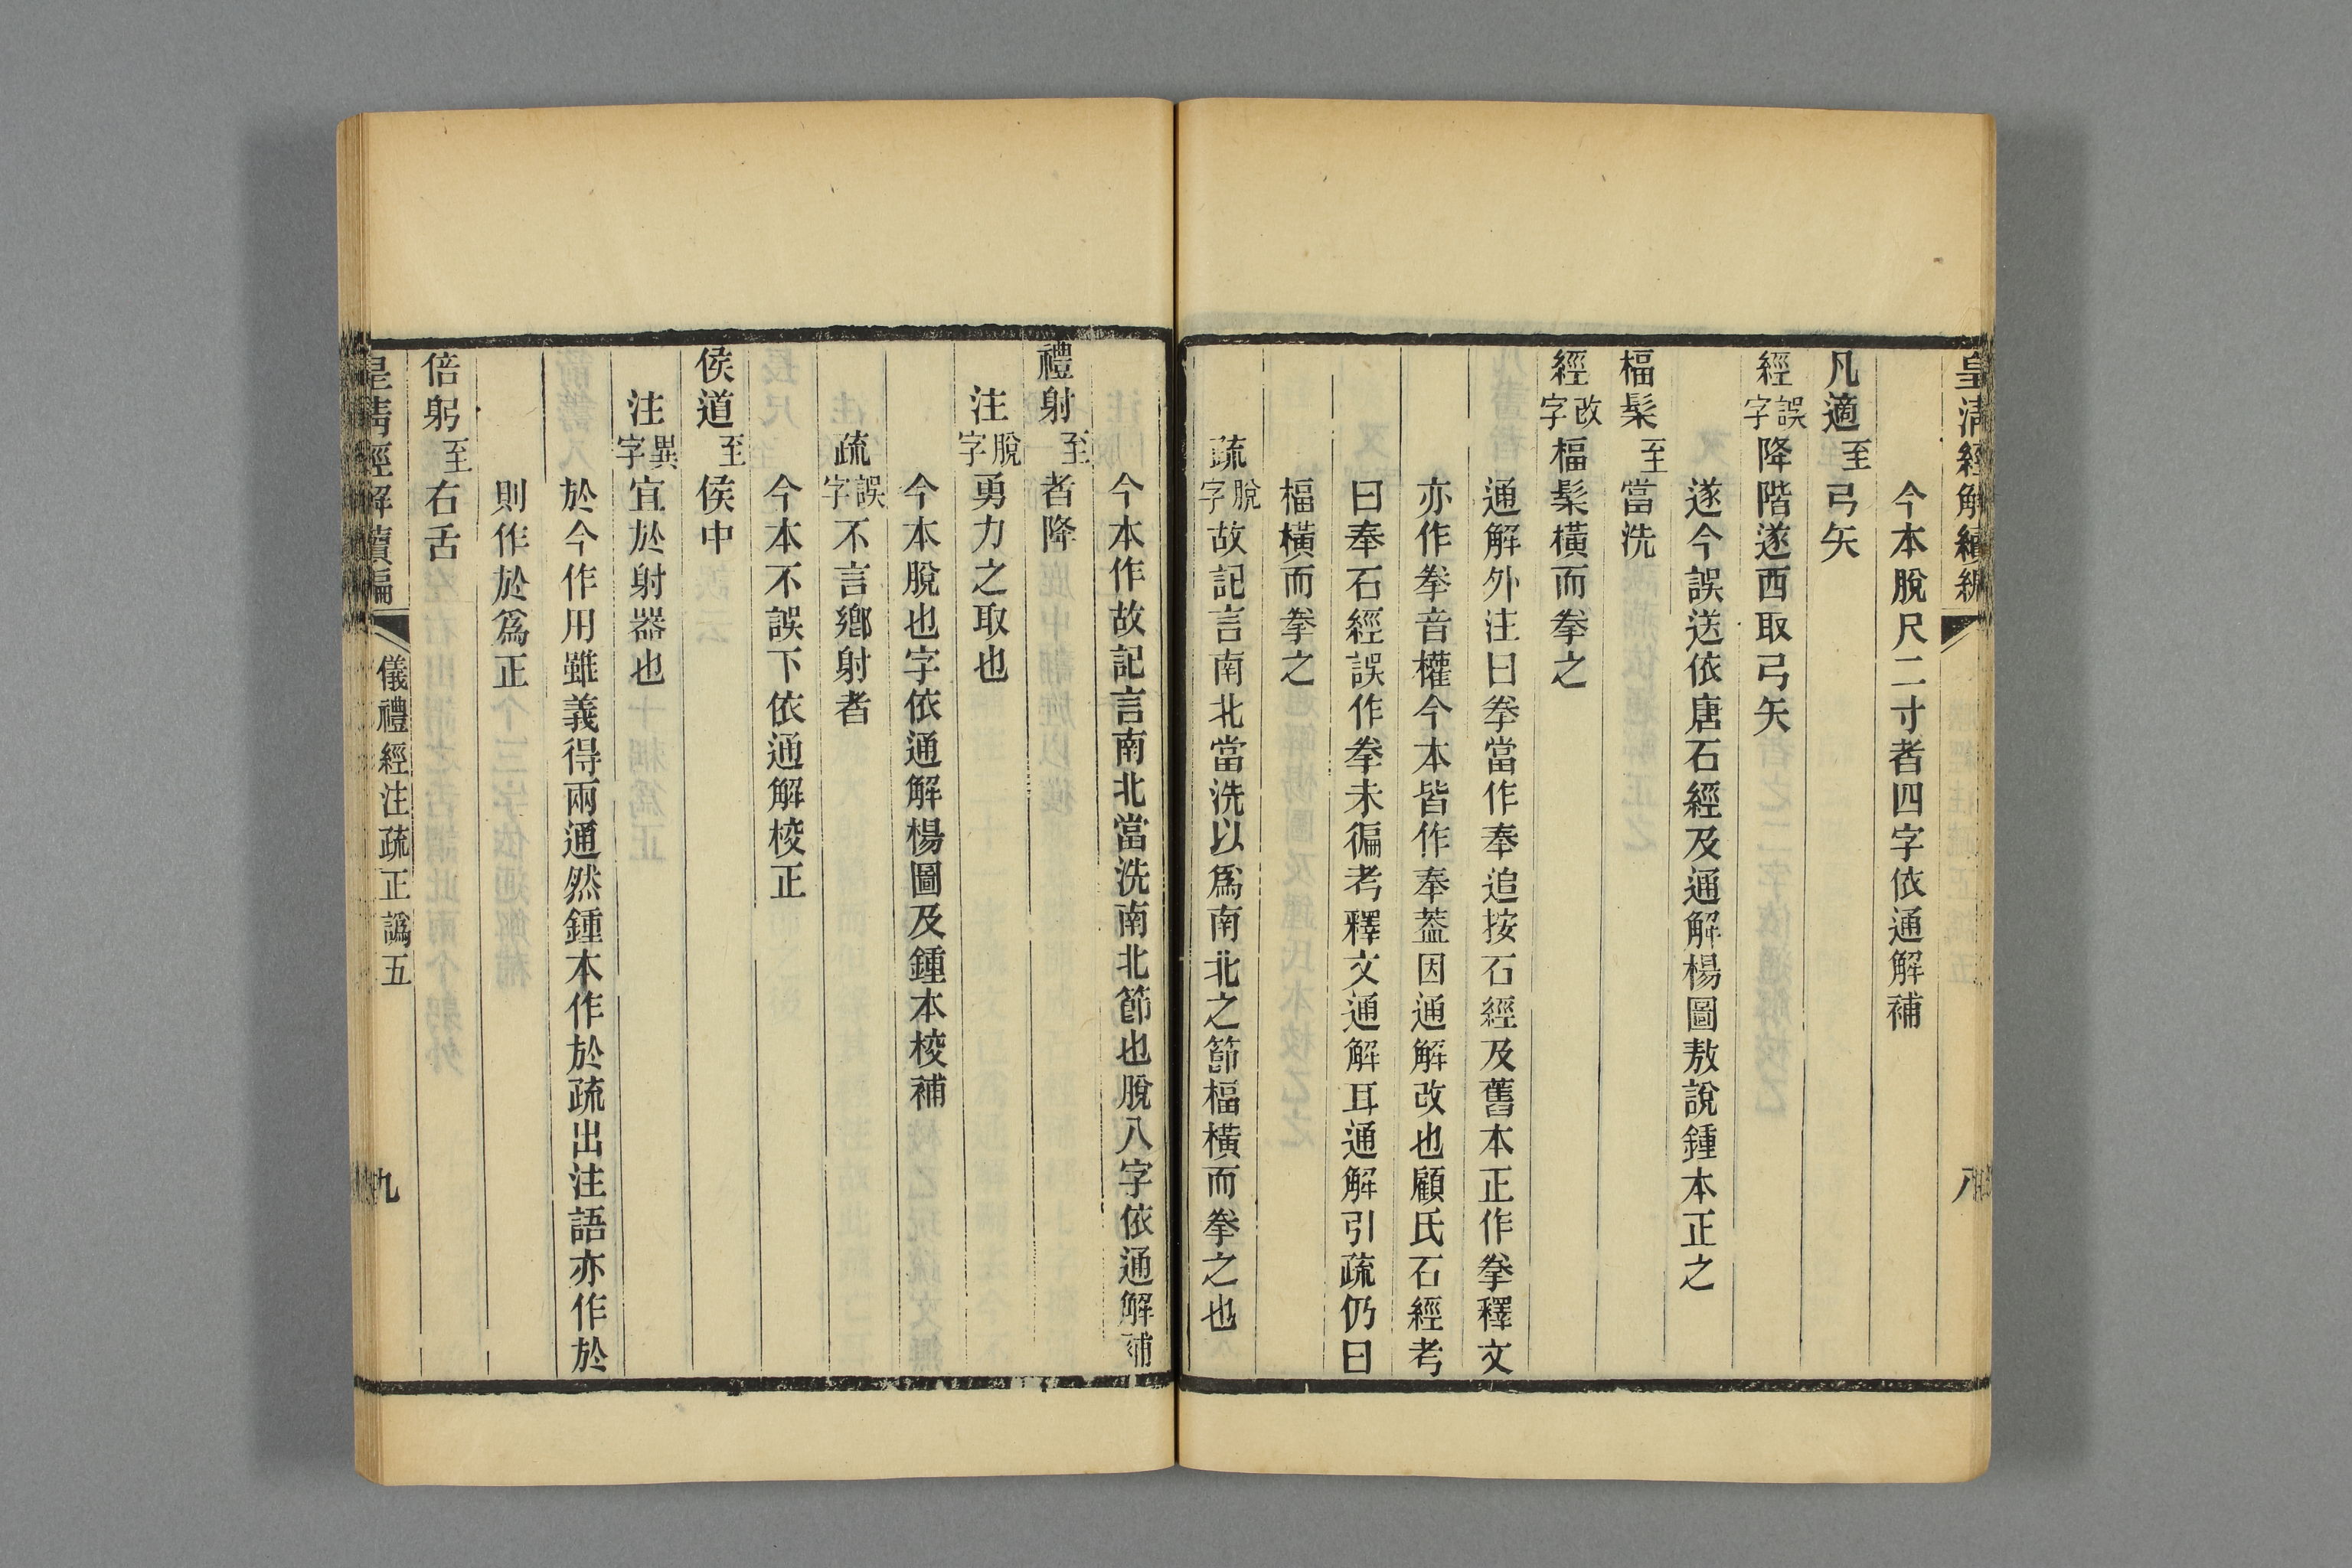 皇清經解續編
八
今本脫尺二寸者四字依通解補
凡適至弓矢
經誤字降階遂西取弓矢
遂今誤送依唐石經及通解楊圖敖說鍾本正之
楅髤至當洗
經改字楅髤橫而拳之
通解外注曰拳當作奉追按石經及舊本正作拳釋文
亦作拳音權今本皆作奉葢因通解改也顧氏石經考
曰奉石經誤作拳未徧考釋文通解耳通解引疏仍曰
楅橫而拳之
疏脫字故記言南北當洗以爲南北之節楅橫而拳之也
今本作故記言南北當洗南北節也脫八字依通解補
禮射至者降
注脫字勇力之取也
今本脫也字依通解楊圖及鍾本校補
疏誤字不言鄉射者
今本不誤下依通解校正
侯道至侯中
注異字宜於射器也
於今作用雖義得兩通然鍾本作於疏出注語亦作於
則作於爲正
倍躬至右舌
皇清經解續編
儀禮經注疏正譌五
九